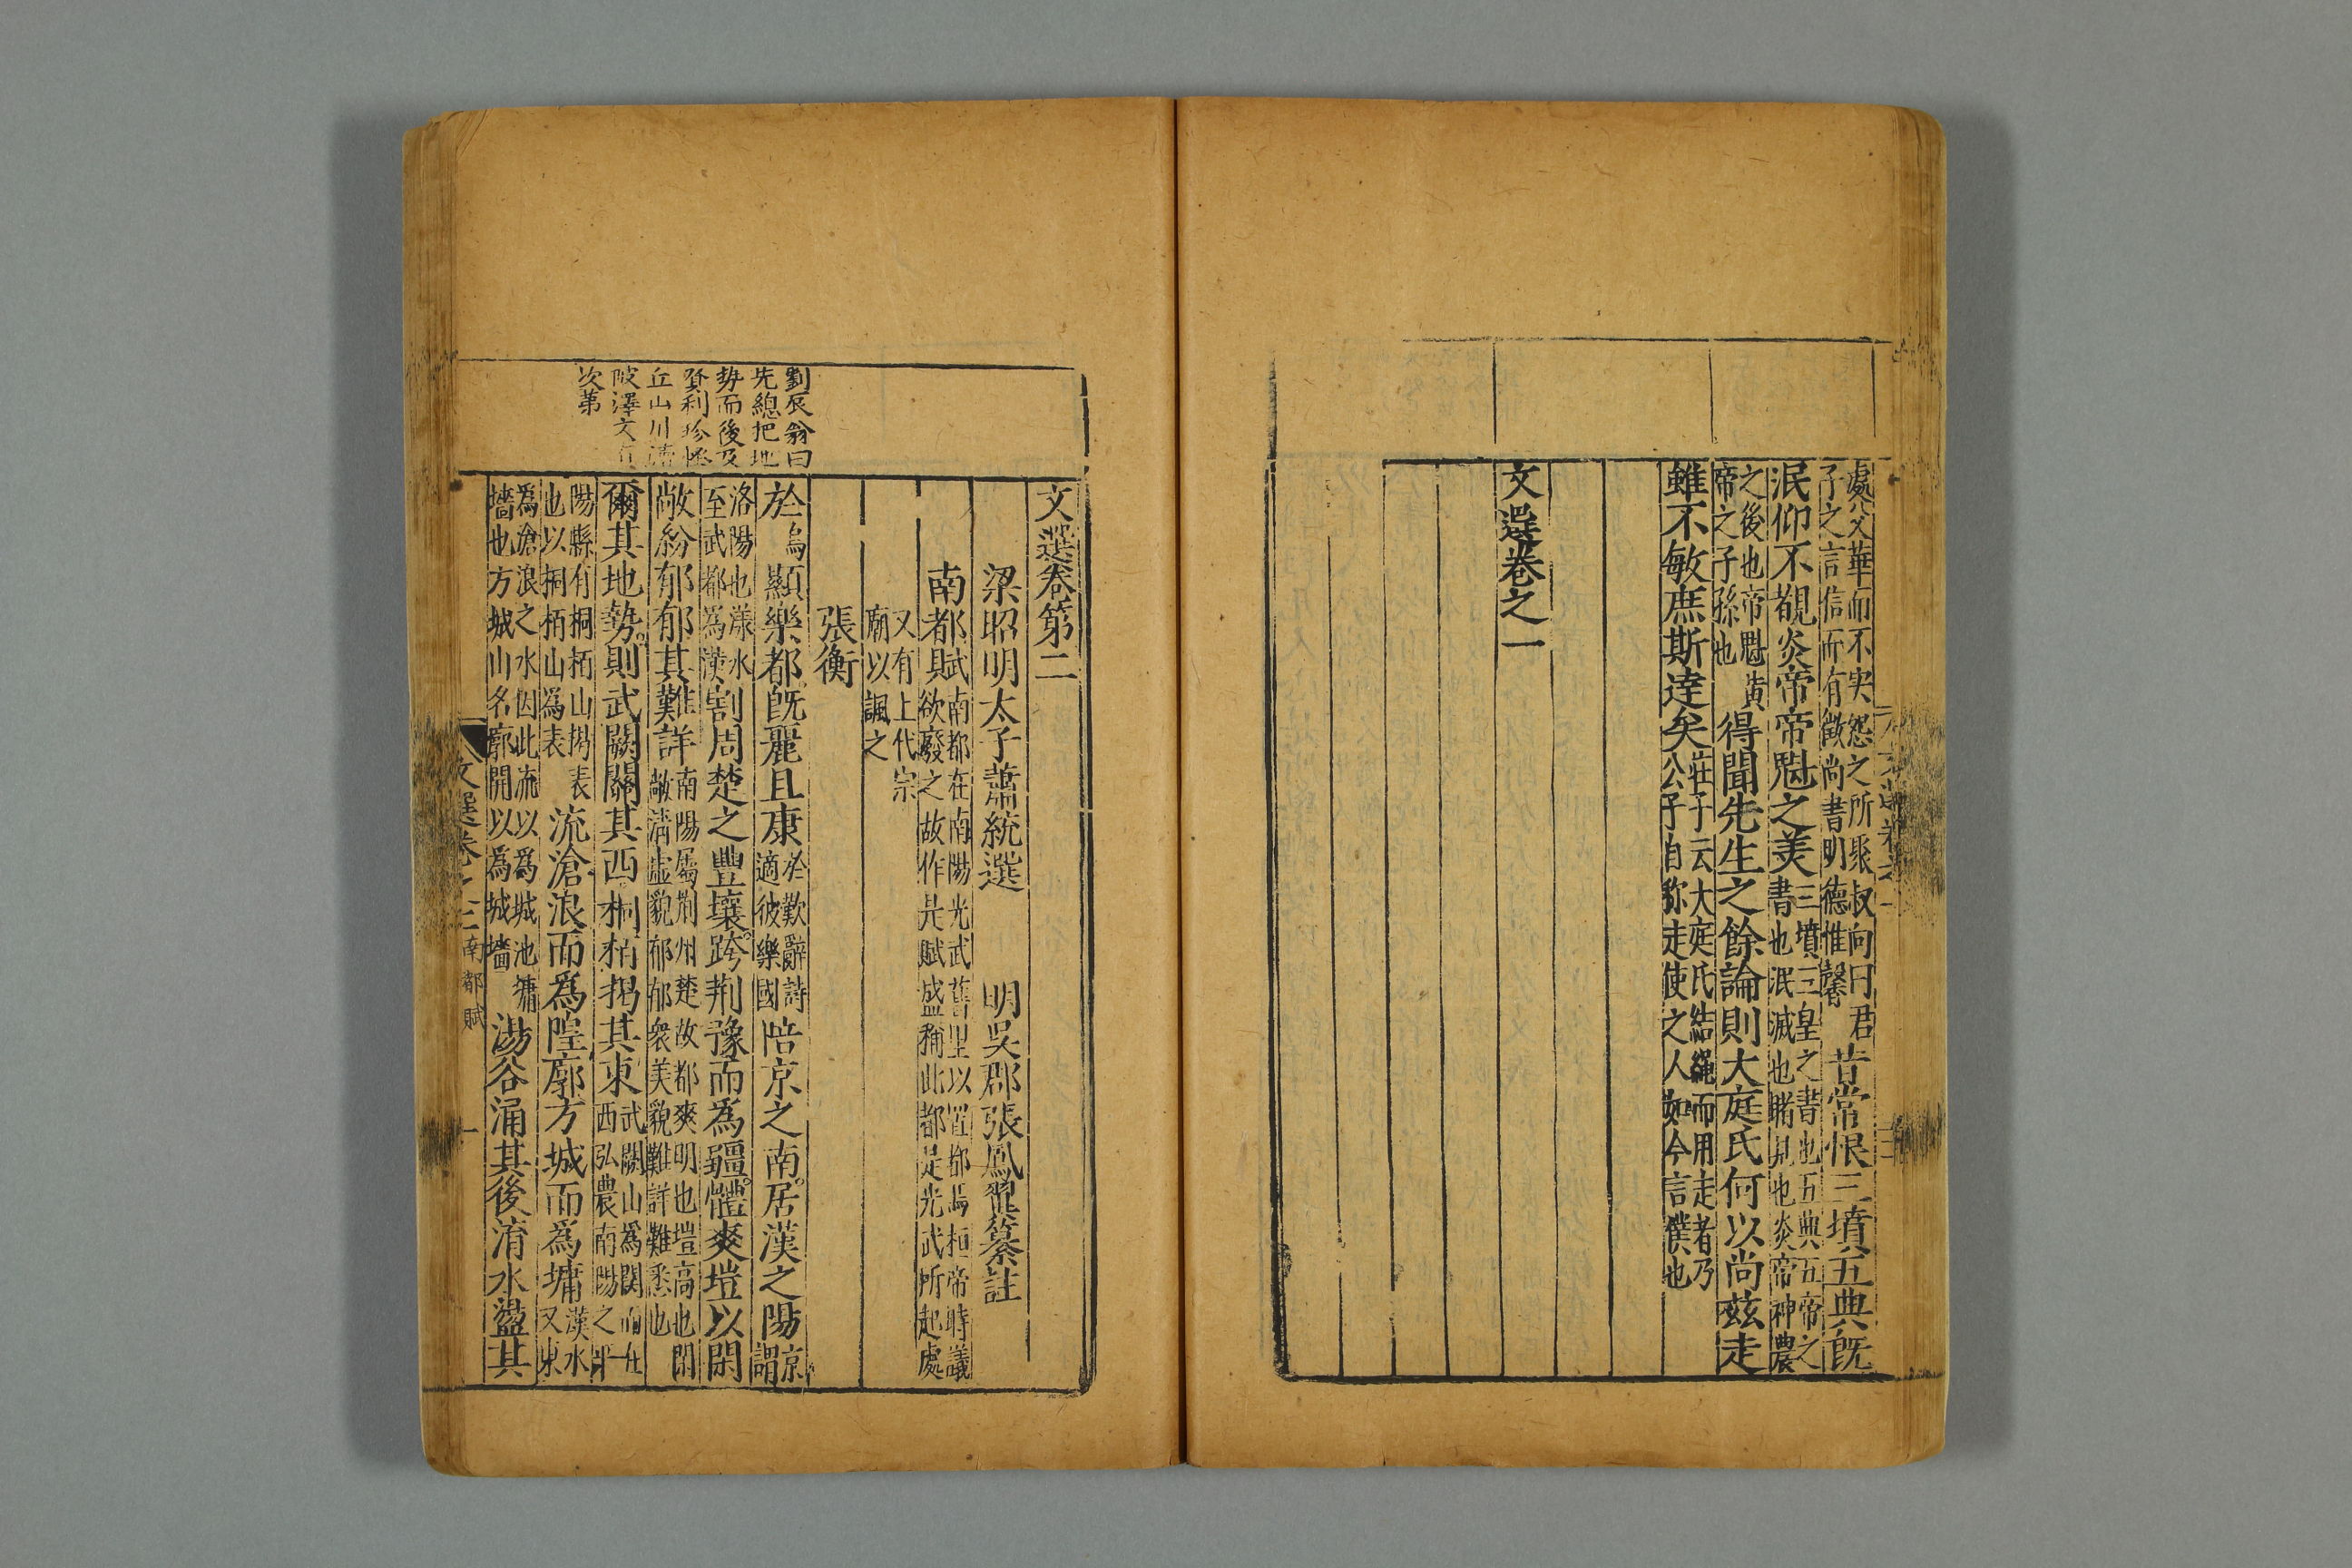 處父華而不実怨之所聚叔向曰君
子之言信而有徵尚書明德惟馨
昔常恨三墳五典旣
泯仰不覩炎帝帝魁之美
三墳三皇之書也五典五帝之
書也泯滅也睹見也炎帝神農
之後也帝魁黃
帝之子孫也
得聞先生之餘論則大庭氏何以尚兹走
雖不敏庶斯達矣
莊子云大庭氏結繩而用走者乃
公子自称走使之人如今言僕也
文選卷之一
文選卷第二
梁昭明太子蕭統選 明吳郡張鳳翼纂註
南都賦
南都在南陽光武舊里以置都焉桓帝時議
欲廢之故作是賦盛稱此都是光武所起處
又有上代宗
廟以諷之
張衡
於烏顯樂都旣麗且康
於歎辭詩
適彼樂國
陪京之南。居漢之陽
京
謂
洛陽也漾水
至武都為漢
割周楚之豐壤。跨荆豫而爲疆。體爽塏以閑
敞紛郁郁其難詳
南陽屬荆州楚故都爽明也塏高也閑
敞清虛貌郁郁衆美貌難詳難悉也
爾其地勢。則武闕關其西桐栢揭其東
武闕山爲関而在
西弘農南陽之界
陽縣有桐栢山揭表
也以桐栢山爲表
流滄浪而爲隍廓方城而爲墉
漢水
又東
爲滄浪之水因此流以爲城池墉
墻也方城山名廓開以爲城墻
湯谷涌其後淯水盪其
劉辰翁曰
先總把地
勢而後及
寳利珍怪
丘山川瀆
陂澤文有
次第
文選卷之二 南都賦 一